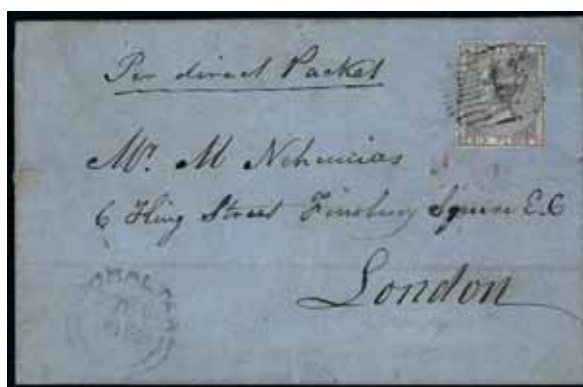 Per direct Packet
Mr. M Nehemias
6 King Street Finsbury Square E.C
London